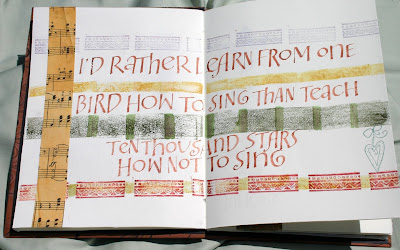 I'D RATHER LEARN FROM ONE
BIRD HOW TO SING THAN TEACH
TEN THOUSAND STARS
HOW NOT TO SING